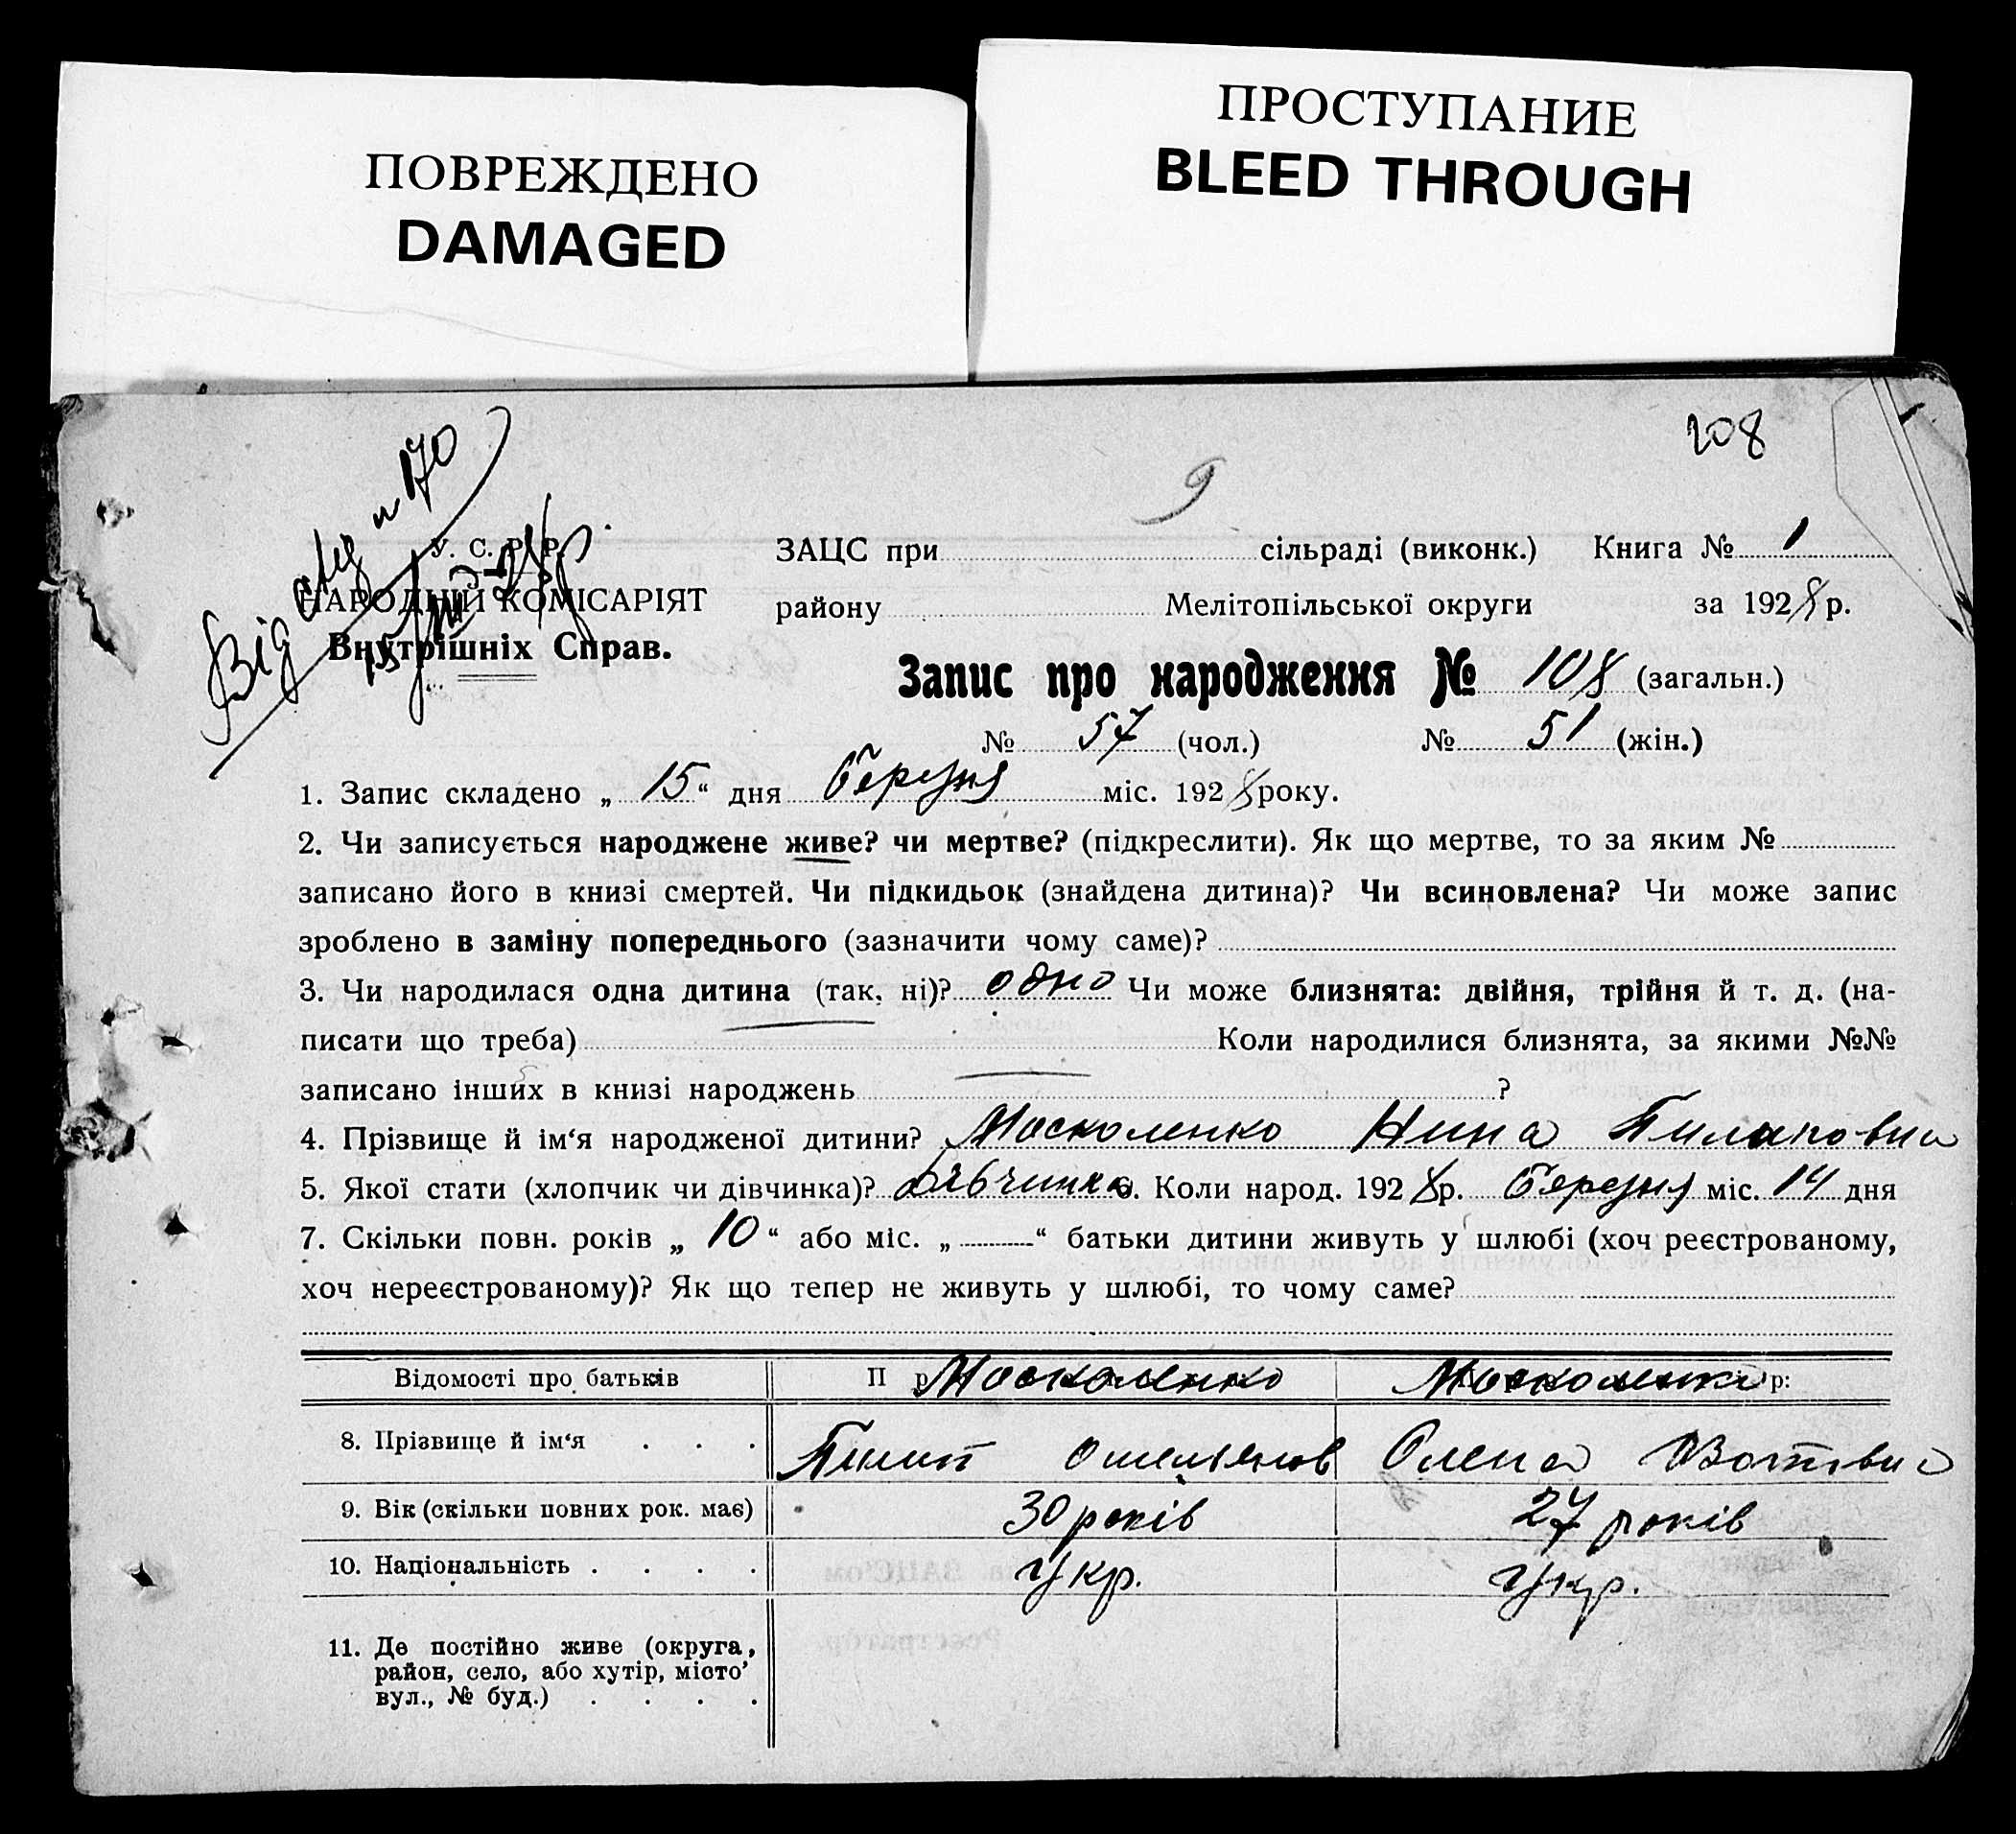 ПОВРЕЖДЕНО
DAMAGED
ПРОСТУПАНИЕ
BLEED THROUGH
208
9
Від акту n 170
15/III-28 р.
У. С. Р. Р.
НАРОДНІЙ КОМІСАРІЯТ
Внутрішніх Справ.
ЗАЦС при сільраді (виконк.) Книга № 1
району Мелітопільської округи за 1928 р.
Запис про народження № 108 (загальн.)
№ 57 (чол.) № 51 (жін.)
1. Запис складено „ 15 “ дня березня міс. 1928 року.
2. Чи записується народжене живе? чи мертве? (підкреслити). Як що мертве, то за яким №
записано його в книзі смертей. Чи підкидьок (знайдена дитина)? Чи всиновлена? Чи може запис
зроблено в заміну попереднього (зазначити чому саме)?
3. Чи народилася одна дитина (так, ні)? одно Чи може близнята: двійня, трійня й т. д. (на-
писати що треба) Коли народилися близнята, за якими №№
записано інших в книзі народжень ?
4. Прізвище й ім‘я народженої дитини? Москоленко Нина Пилиповна
5. Якої стати (хлопчик чи дівчинка)? дівчинка 6. Коли народ. 1928 р. березня міс. 14 дня
7. Скільки повн. років „ 10 “ або міс. „ — “ батьки дитини живуть у шлюбі (хоч реєстрованому,
хоч нереєстрованому)? Як що тепер не живуть у шлюбі, то чому саме?
Відомості про батьків Москоленко Москоленко
8. Прізвище й ім‘я . . . Пилип Омельянов Олена
9. Вік (скільки повних рок. має) 30 років 27 років
10. Національність . . . . Укр. Укр.
11. Де постійно живе (округа,
район, село, або хутір, місто
вул., № буд.) . . . .